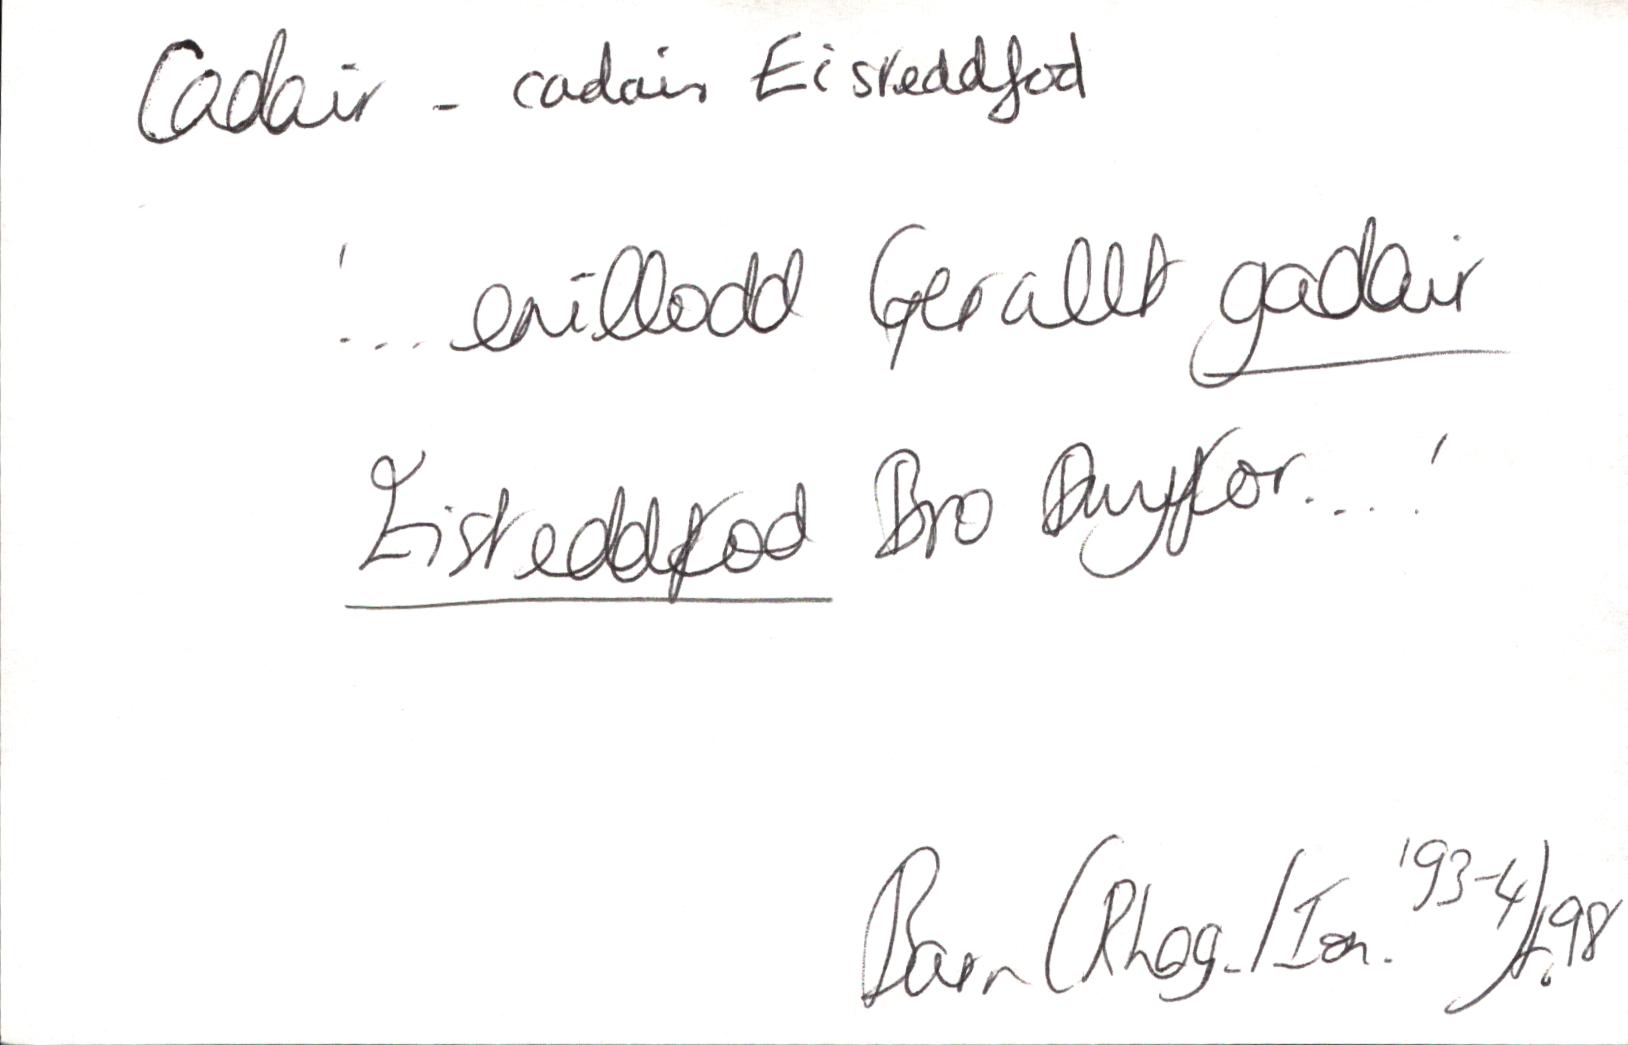 Cadair - cadair Eisteddfod
'... enillodd Gerallt gadair
Eisteddfod Bro Dwyfor....'
Barn (Rhag./Ion. '93-4), t.98